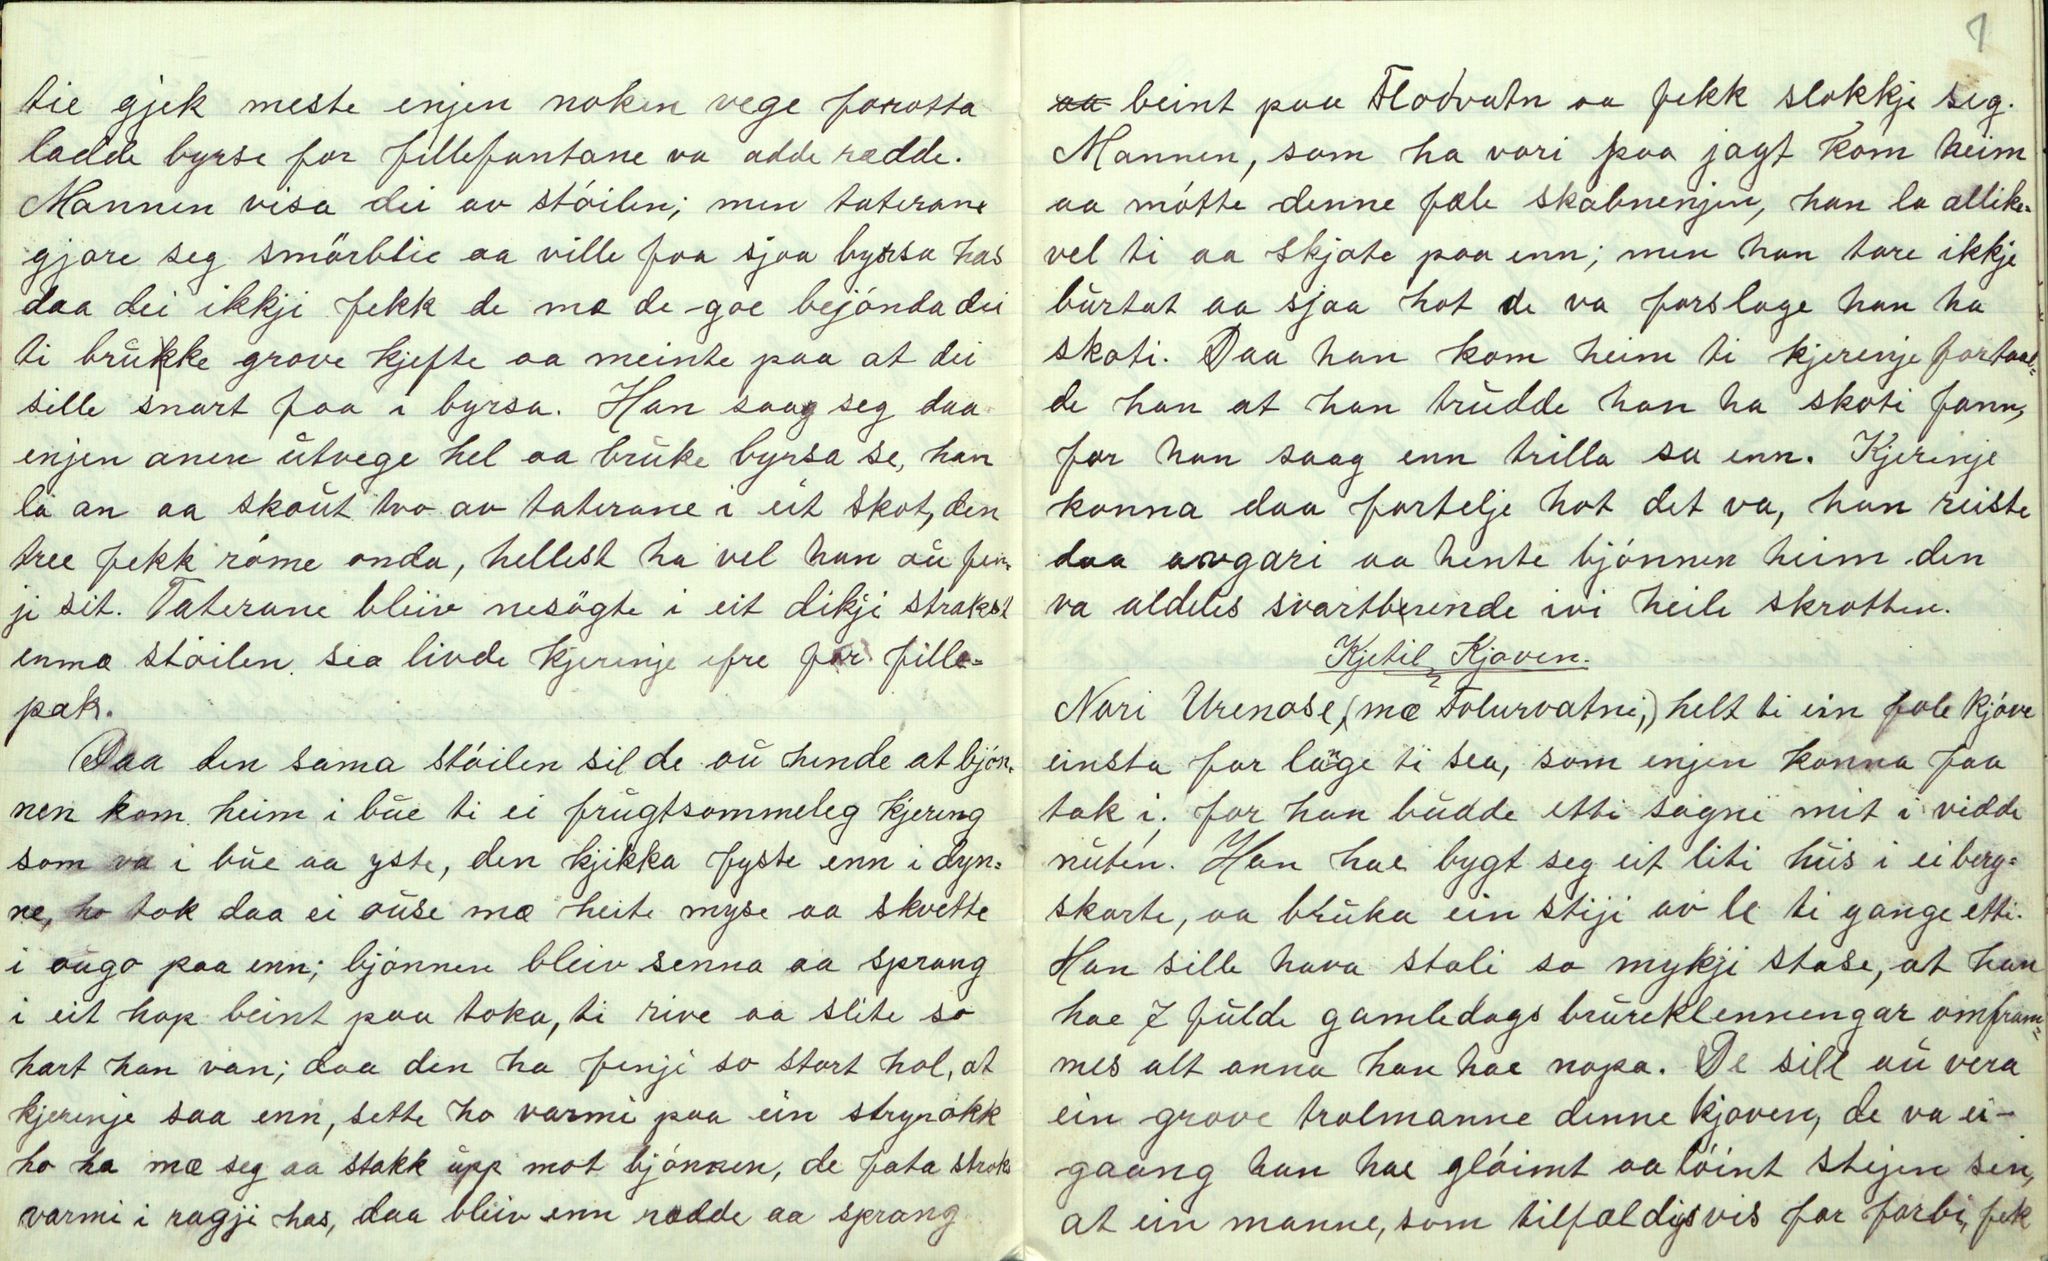 tie gjek meste enjen noken vege forotta
ladde byrse for fillefantane va adde rædde.
Mannen visa dei av stóilen; men taterane
gjore seg smörblie aa ville faa sjaa byrsa has
daa dei ikkji fekk de mæ de goe bejónda dei
ti brukke grove kjefte aa meinte paa at dei
sille snart faa i byrsa. Han saag seg daa
enjen anen ütvege hel aa brüke byrsa se, han
la an aa skaüt tvo av taterane i eit skot, den
tree fekk róme onda, hellest ha vel han aü fen-
ji sit. Taterane bleiv nesögte i eit dikji strakst
enmæ stóilen sea livde kjerenje efre for fille-
pak.
Daa den sama stóilen sil de aü hende at bjón-
nen kom heim i büe ti ei frügtsommeleg kjering
som va i büe aa yste, den kjikka fyste enn i dyn-
ne, ho tok daa ei aüse mæ heite myse aa skvette
i aügo paa enn; bjónnen bleiv senna aa sprang
i eit hop beint paa toka, ti rive aa slite so
hart han van; daa den ha fenji so stort hol, at
kjerenje saa enn, sette ho varmi paa ein strynakk
ho ha mæ seg aa stakk üpp mot bjónnen, de fata straks
varmi i ragji has, daa bleiv enn rædde aa sprang
1
aa beint paa Flodvatn aa fekk slokkje seg.
Mannen, som ha vori paa jagt kom heim
aa mótte denne fæle skabnenjen, han la allike-
vel ti aa skjote paa enn; men han tore ikkje
bürtat aa sjaa hot de va forslage han ha
skoti. Daa han kom heim ti kjerenje fortaal-
de han at han trüdde han ha skoti fann,
for han saag enn trilla sa enn. Kjerenje
konna daa fortelje hot det va, han reiste
daa avgari aa hente bjónnen heim den
va aldeles svartbrende ivi heile skrotten.
Kjetil Kjoven.
Nori Urenose, (mæ Folurvatni,) helt ti ein fole kjóve
einsta for lange ti sea, som enjen konna faa
tak i; for han büdde etti sogni mit i vidde
nüten. Han hae bygt seg eit liti hüs i ei berg-
skorte, aa brüka ein stiji av le ti gange etti.
Han sille hava stoli so mykji stase, at han
hae 7 fülde gamledags brüreklenningar omfram-
mes alt anna han hae napa. De sill aü vera
ein grove trolmanne denne kjoven, de va ei-
gaang han hae glóimt aa lóint stijen sin,
at ein manne, som tilfældigsvis for forbi, fek